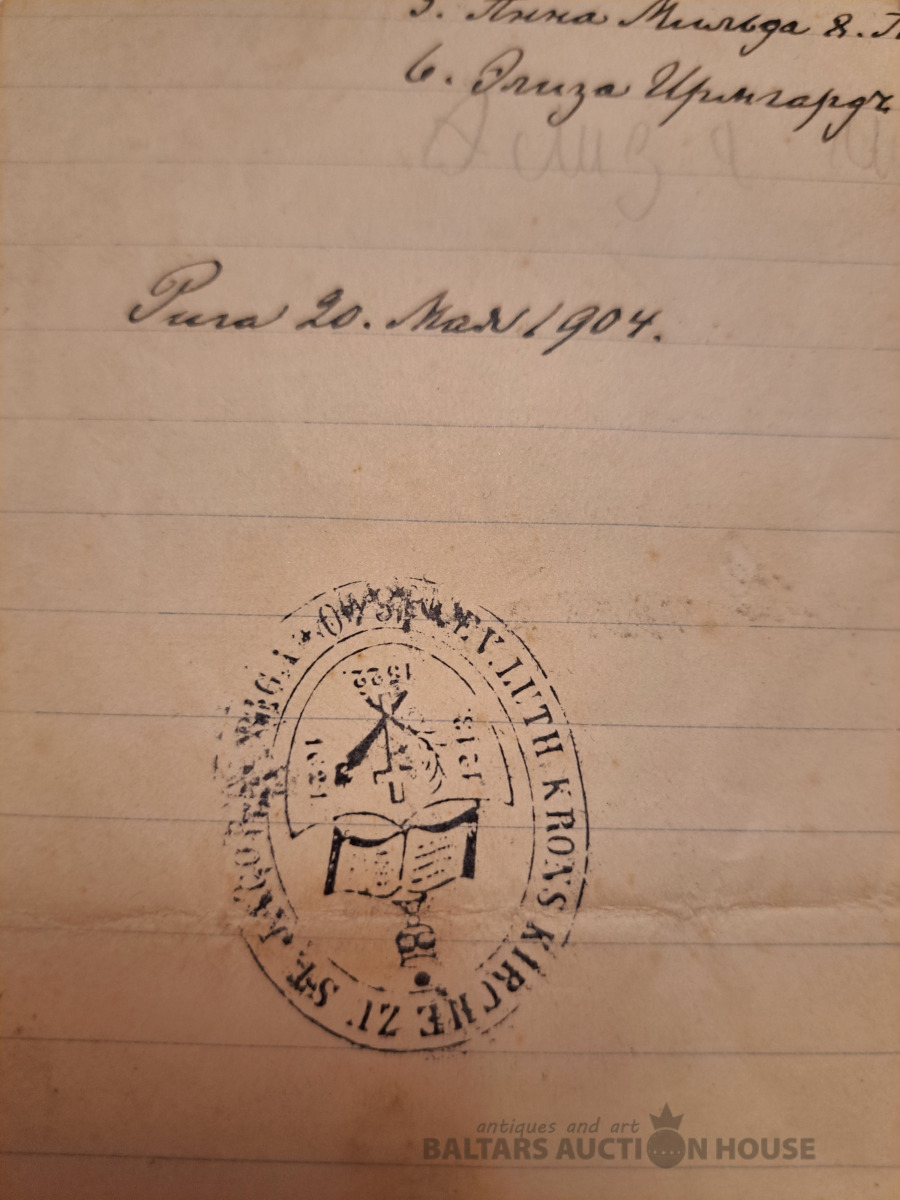 5. Анна Мильда
6. Элиза Ирмгардъ
Элиза
Рига 20. Мая 1904.
EV. LUTH. KRONS KIRCHE ZU ST. JACOB RIGA
1522
1621
BIB
antiques and art
BALTARS AUCTION HOUSE